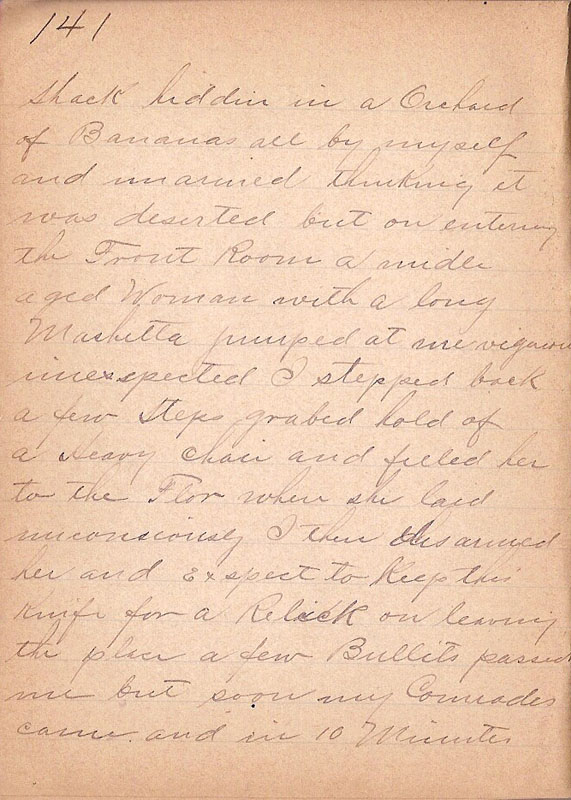 141
Shack hiddin in a Orchard
of Bananas all by myself
and unarmed thinking it
was deserted but on entering
the Front Room a midle
aged Woman with a long
Mashetta jumped at me
unexspected I stepped back
a few Steps grabed hold of
a heavy Chair and felled her
to the Flor when she laid
unconsiously I then disarmed
her and Expect to Keep this
Knife for a Relick on leaving
the place a few Bullits passed
me but soon my Comrades
came and in 10 Minutes